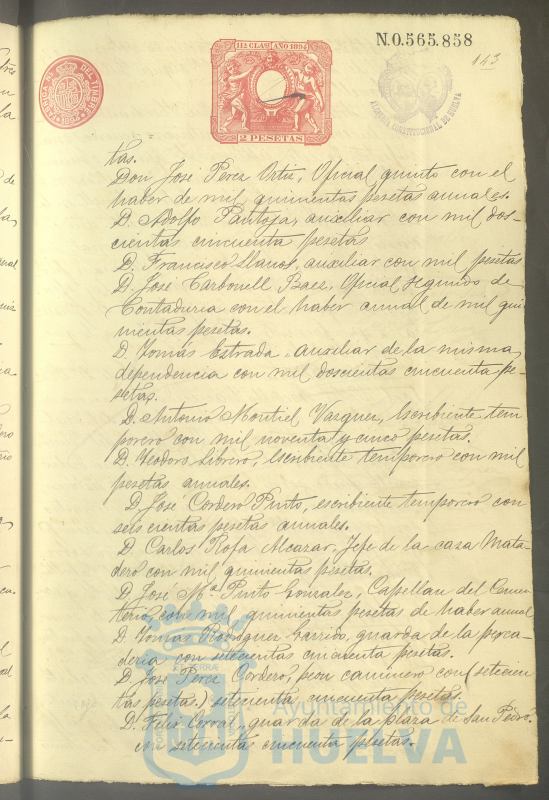 11ª CLASE AÑO 1894
N.0.565.858
143
FABRICA Nl. DEL TIMBRE
1894
2 PESETAS
ALCALDIA CONSTITUCIONAL DE HUELVA
tas.
Don José Perez Ortiz, Oficial quinto con el
haber de mil quinientas pesetas annales.
D. Adolfo Pantoja, auxiliar con mil dos-
cientas cincuenta pesetas
D. Francisco Llanos, auxiliar con mil pesetas
D. José Carbonell Baez, Oficial segundo de
Contaduria con el haber annal de mil qui-
nientas pesetas.
D. Tomás Estrada, auxiliar de la misma
dependencia con mil doscientas cincuenta pe-
setas.
D. Antonio Montiel Vazquez, Escribiente tem
porero con mil noventa y cinco pesetas.
D. Teodoro Librero, Escribiente temporero con mil
pesetas annales.
D. José Cordero Pinto, escribiente temporero con
seis cientas pesetas annales.
D. Carlos Rofa Alcazar, Jefe de la casa Mata-
dero con mil quinientas pesetas.
D. José Mª Pinto Gonzalez, Capellan del Cemen
terio, con mil quinientas pesetas de haber annal
D. Tomas Rodriguez Garrido, guarda de la pesca-
deria con setecientas cincuenta pesetas.
D. José Perez Cordero, peon caminero con (setecien
tas pesetas.) setecientas cincuenta pesetas.
D. Felix Corral, guarda de la plaza de San Pedro
con setecientas cincuenta pesetas.
Ayuntamiento de
HUELVA